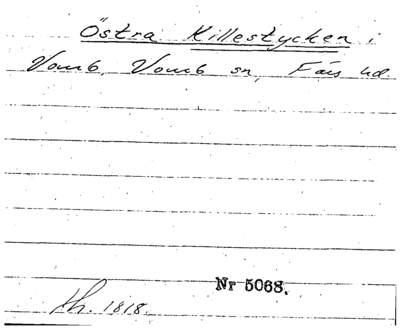 Östra Killestycken i
Vomb, Vomb sn, Färs hd
Nr 5068.
Th. 1818.